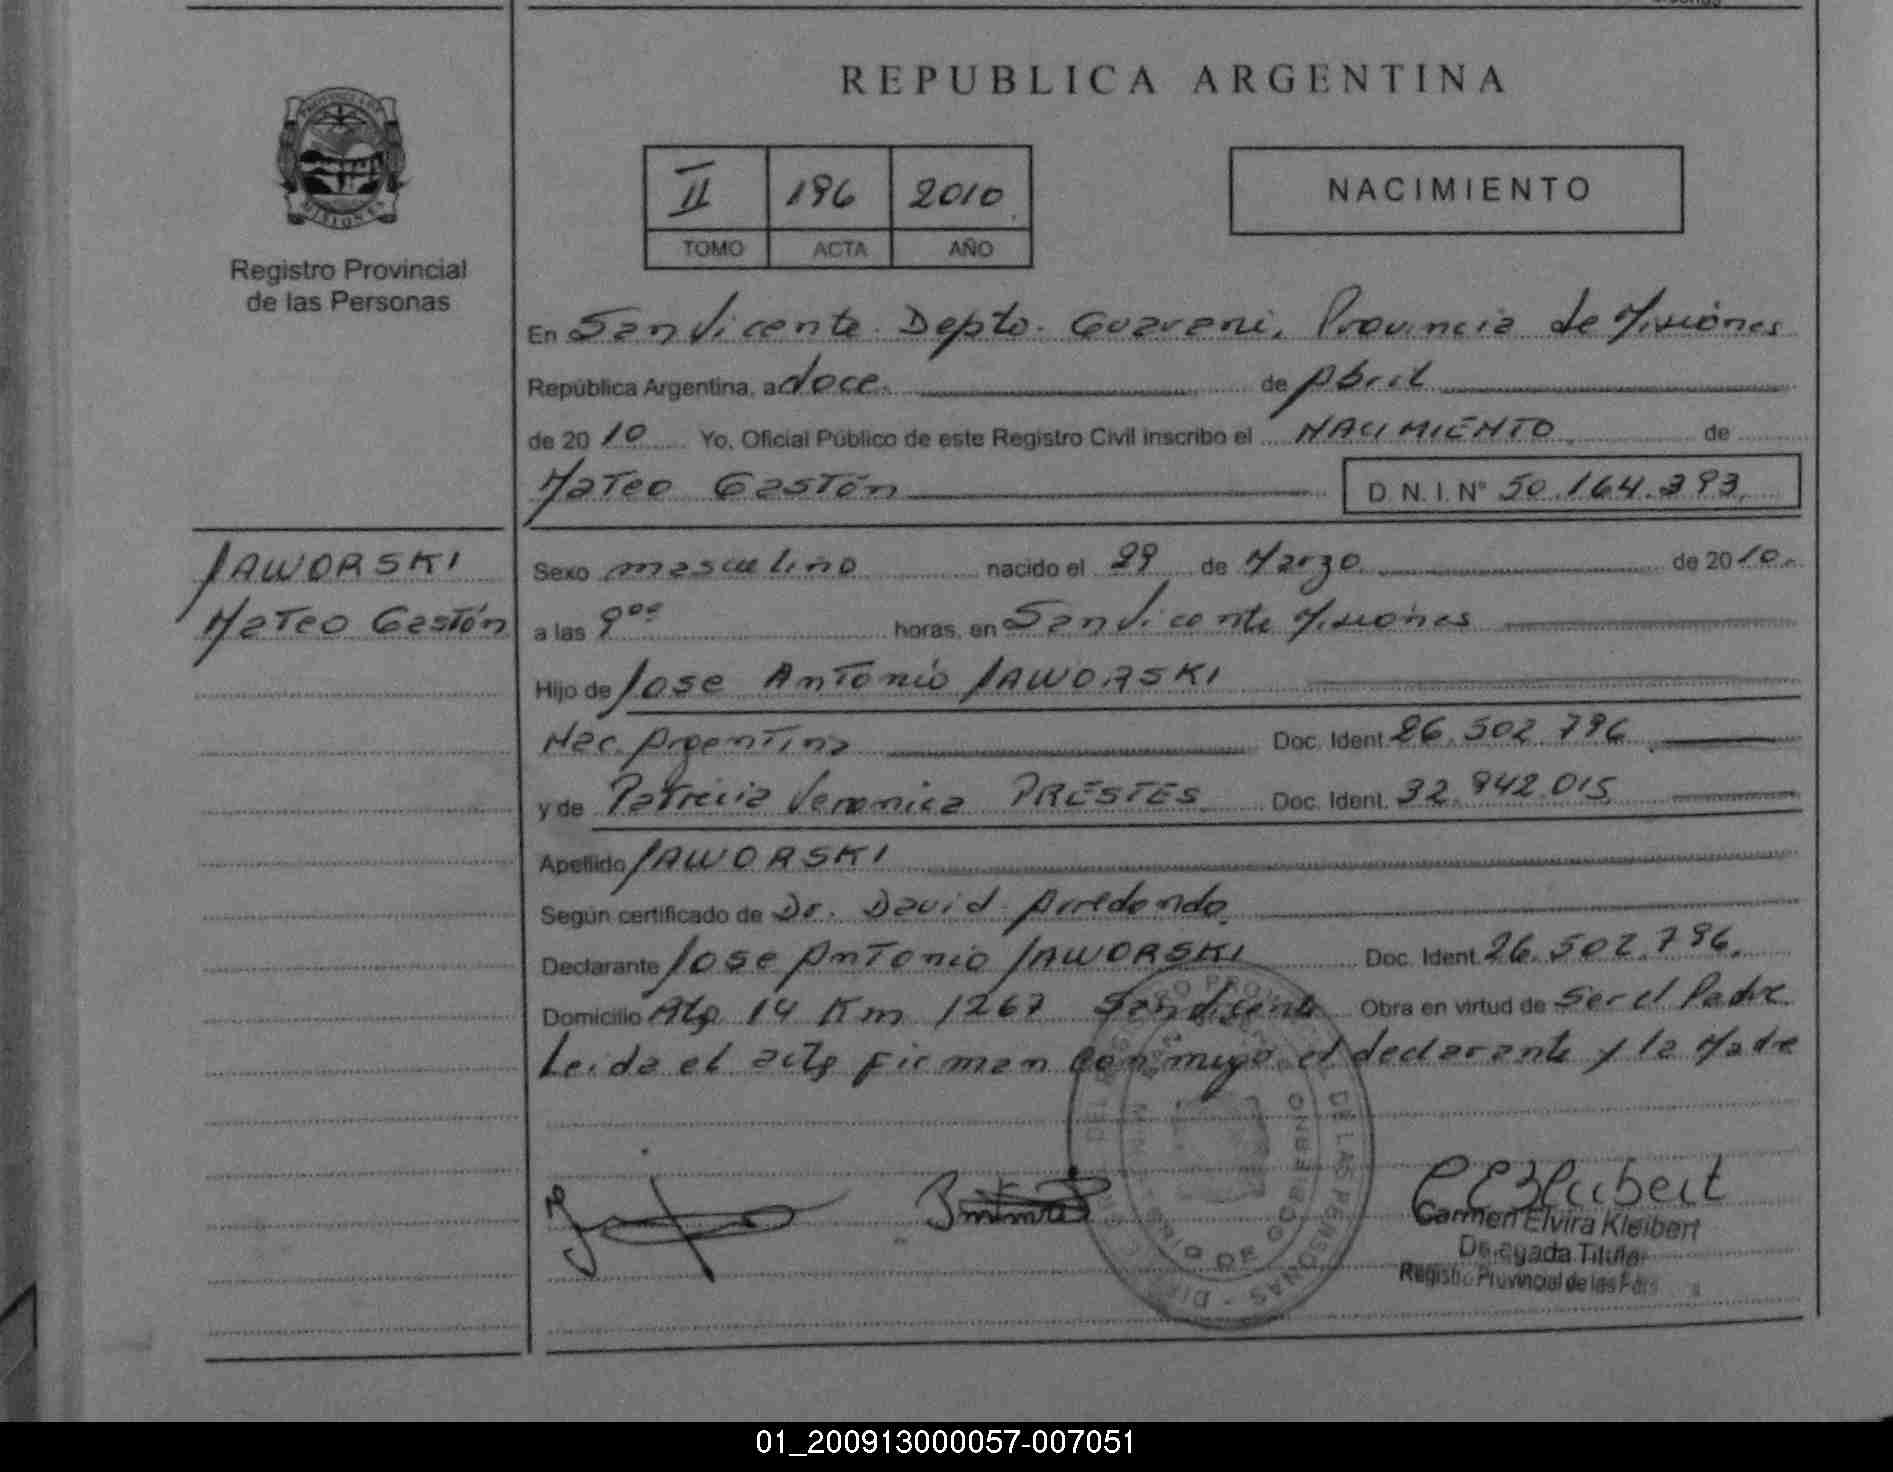 REPUBLICA ARGENTINA
PROVINCIA DE
MISIONES
Registro Provincial
de las Personas
II 196 2010
TOMO ACTA AÑO
NACIMIENTO
En San Vicente Depto. Guarani, Provincia de Misiónes
República Argentina, a doce. de Abril
de 2010 Yo, Oficial Público de este Registro Civil inscribo el NACIMIENTO de
Mateo Gastón D. N. I. N° 50.164.393
JAWORSKI
Mateo Gastón
Sexo masculino nacido el 29 de Marzo de 2010
a las 9⁰⁰ horas, en San Vicente Misiónes
Hijo de Jose Antonio JAWORSKI
Nac. Argentina Doc. Ident. 26.502.796
y de Patricia Veronica PRESTES Doc. Ident. 32.942.015
Apellido JAWORSKI
Según certificado de Dr. David Arredondo
Declarante Jose Antonio JAWORSKI Doc. Ident. 26.502.796.
Domicilio Km 1267 San Vicente Obra en virtud de Ser el Padre
Leida el acta firman conmigo el declarante y la Madre
DE LAS PERSONAS - MINISTERIO DE GOBIERNO
Carmen Elvira Kleibert
Delegada Titular
Registro Provincial de las Pers
01_200913000057-007051